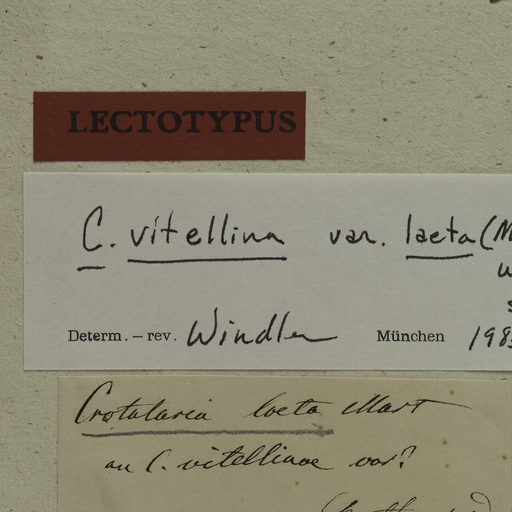 LECTOTYPUS
C. vitellina var. laeta (M
Determ. – rev. Windler München 198
Crotalaria laeta Mart
an C. vitellinae var?